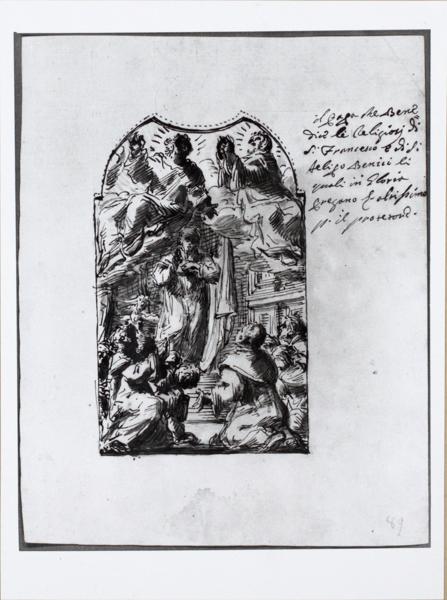 il Papa che Bene
dice le Religiosi di
S: Francesco e di S:
Filipo Benizi li
quali in Gloria
pregano l'altissimo
p: il
89